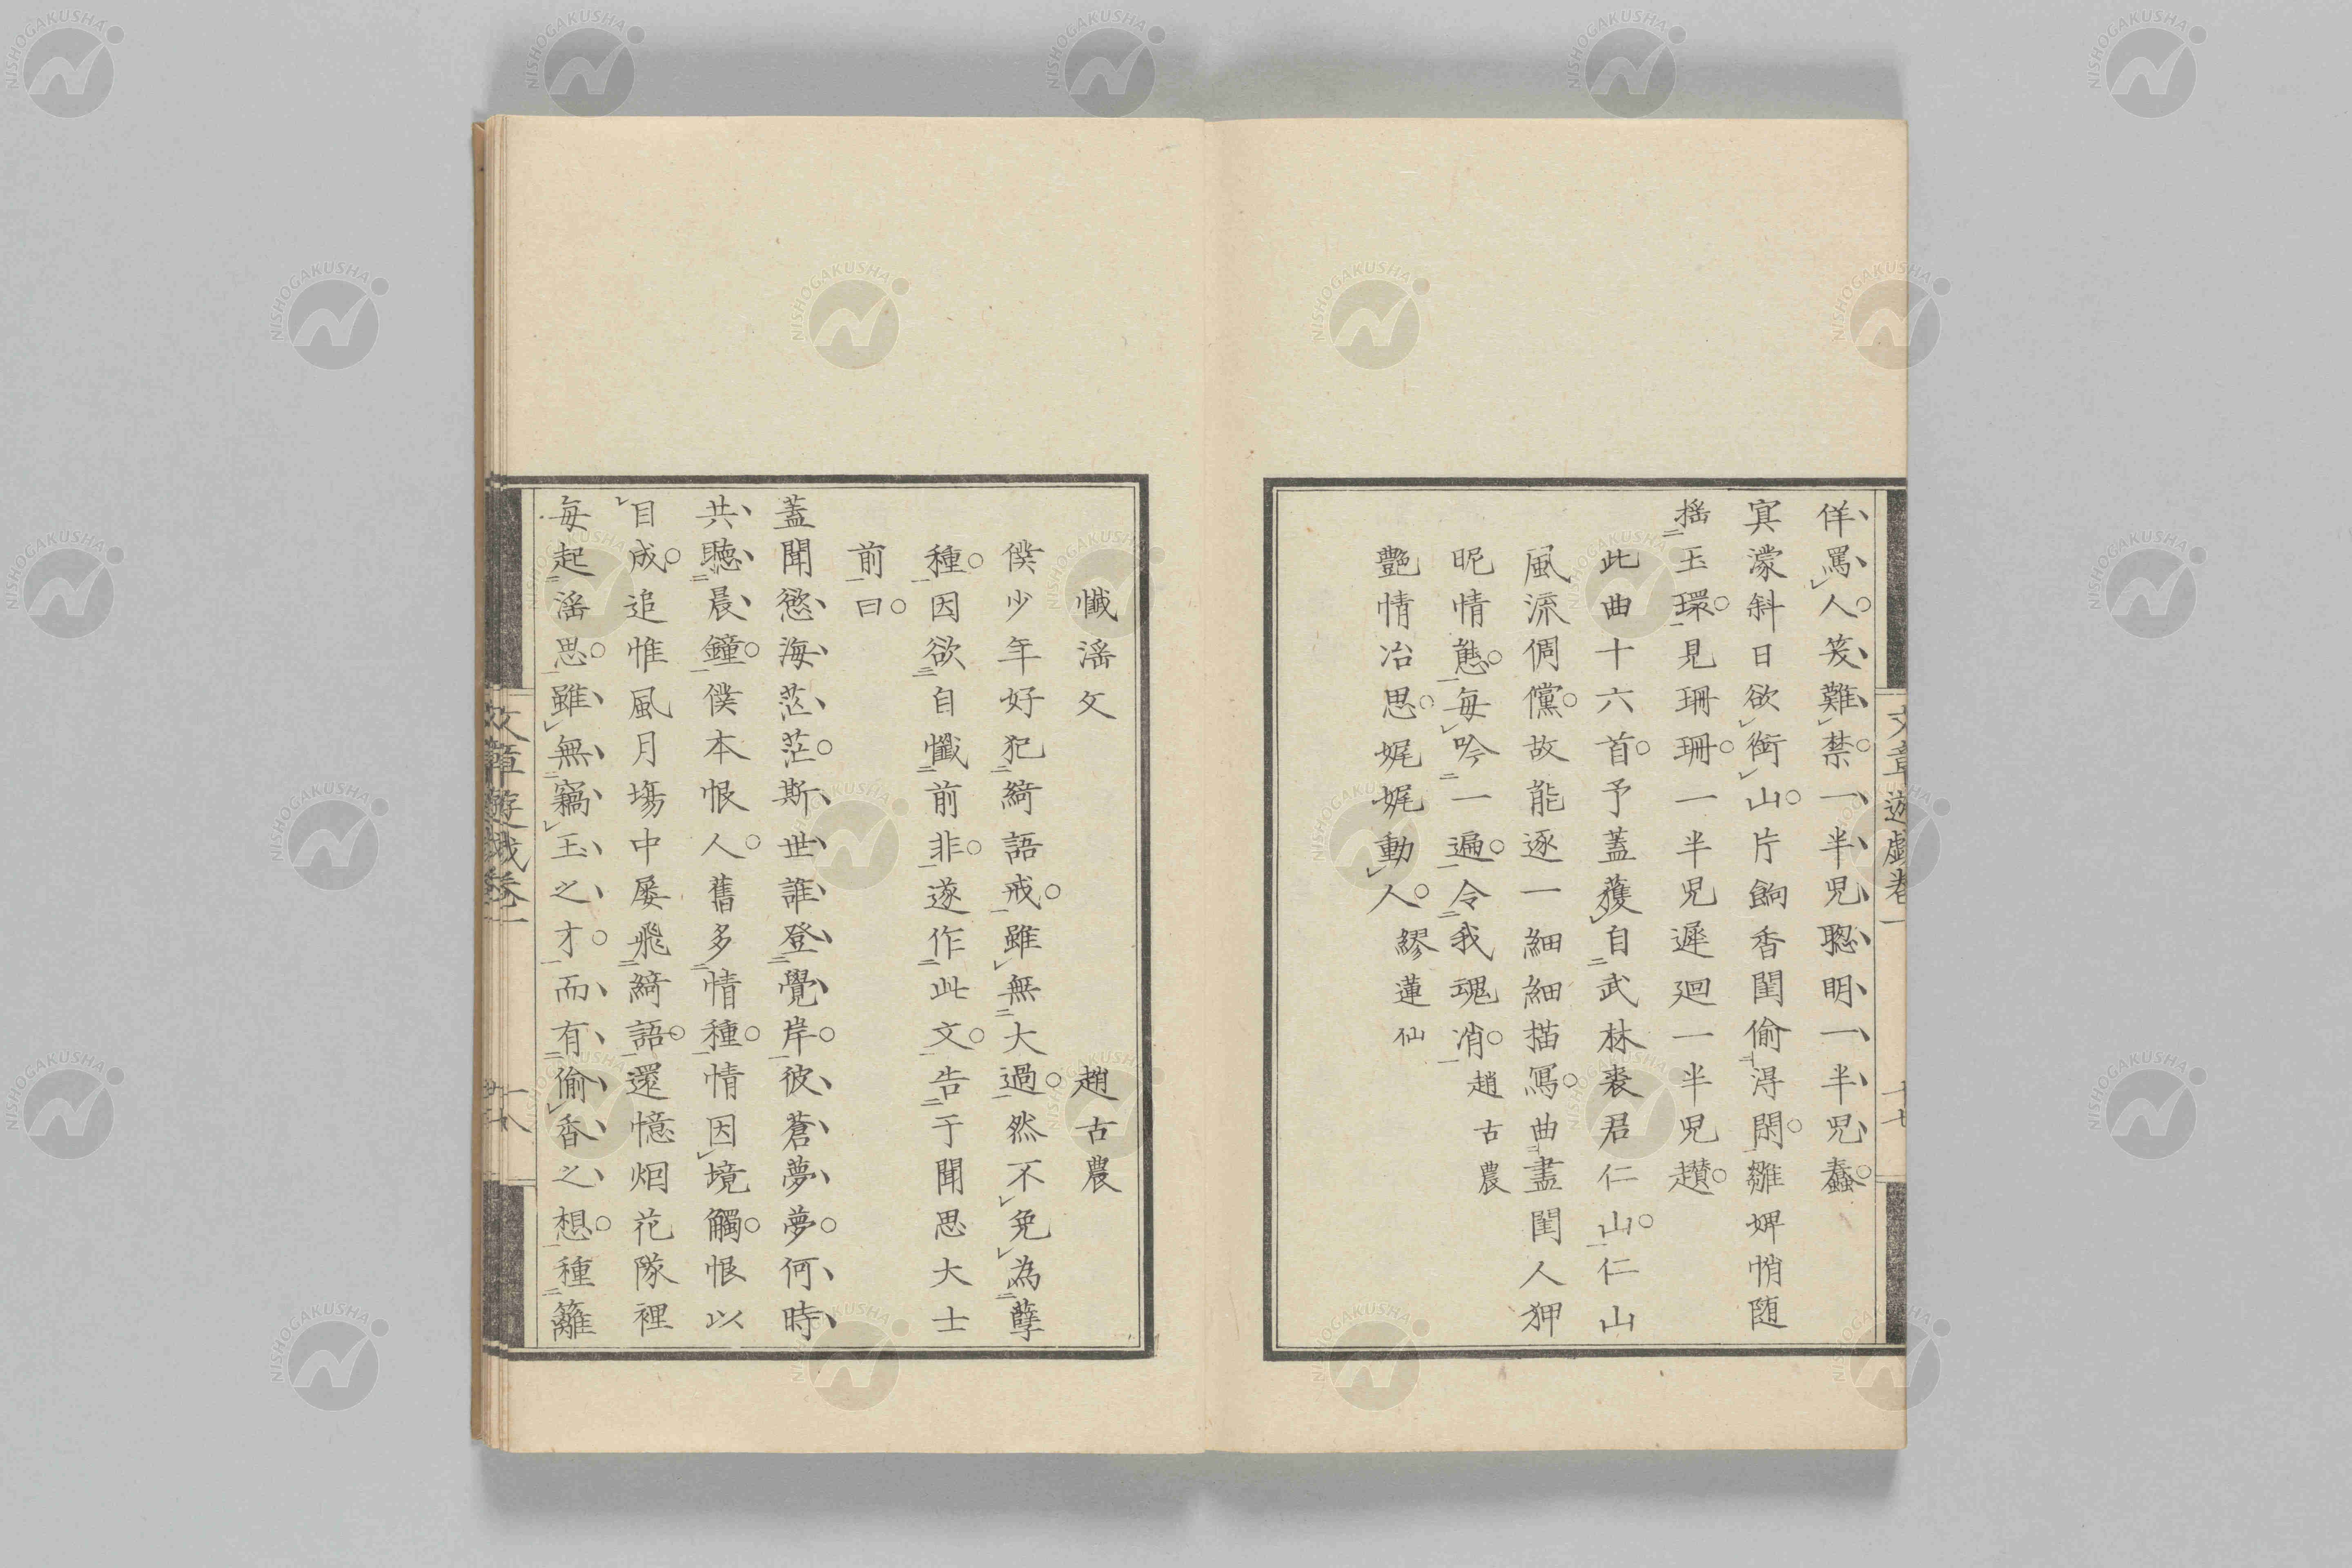 文章遊戲卷一
十七
佯罵人。笑難禁。一半兒聰明一半兒蠢。
寘濛斜日欲銜山。片餉香閨偷得閑。雛婢悄随
搖玉環。見珊珊。一半兒遲廻一半兒趲。
此曲十六首。予蓋獲自武林裘君仁山。仁山
風流倜儻。故能逐一細細描寫。曲盡閨人狎
昵情態。每吟一遍。令我魂消。趙古農
艷情冶思。娓娓動人。繆蓮仙
懺滛文 趙古農
僕少年好犯綺語戒。雖無大過。然不免為孽
種。因欲自懺前非。遂作此文。告于聞思大士
前曰。
蓋聞慾海茫茫。斯世誰登覺岸。彼蒼夢夢。何時
共聽晨鐘。僕本恨人。舊多情種。情因境觸。恨以
目成。追惟風月塲中屡飛綺語。還憶烟花隊裡
每起滛思。雖無竊玉之才。而有偷香之想。種籬
文章遊戲卷一
十八